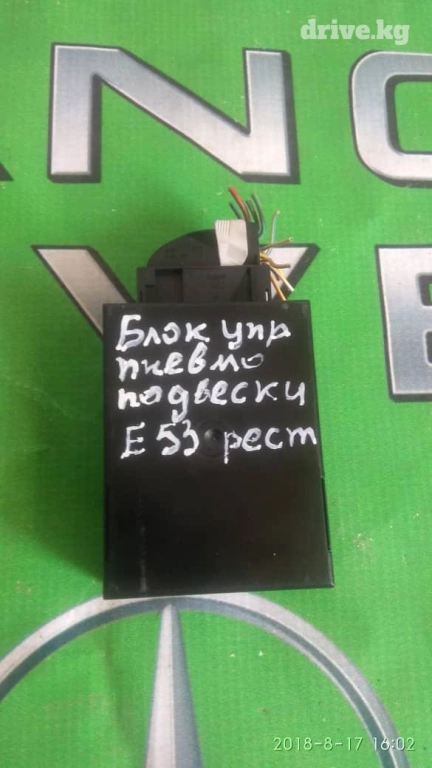 drive.kg
Блок упр
пневмо
подвески
E 53 рест
2018-8-17 16:02